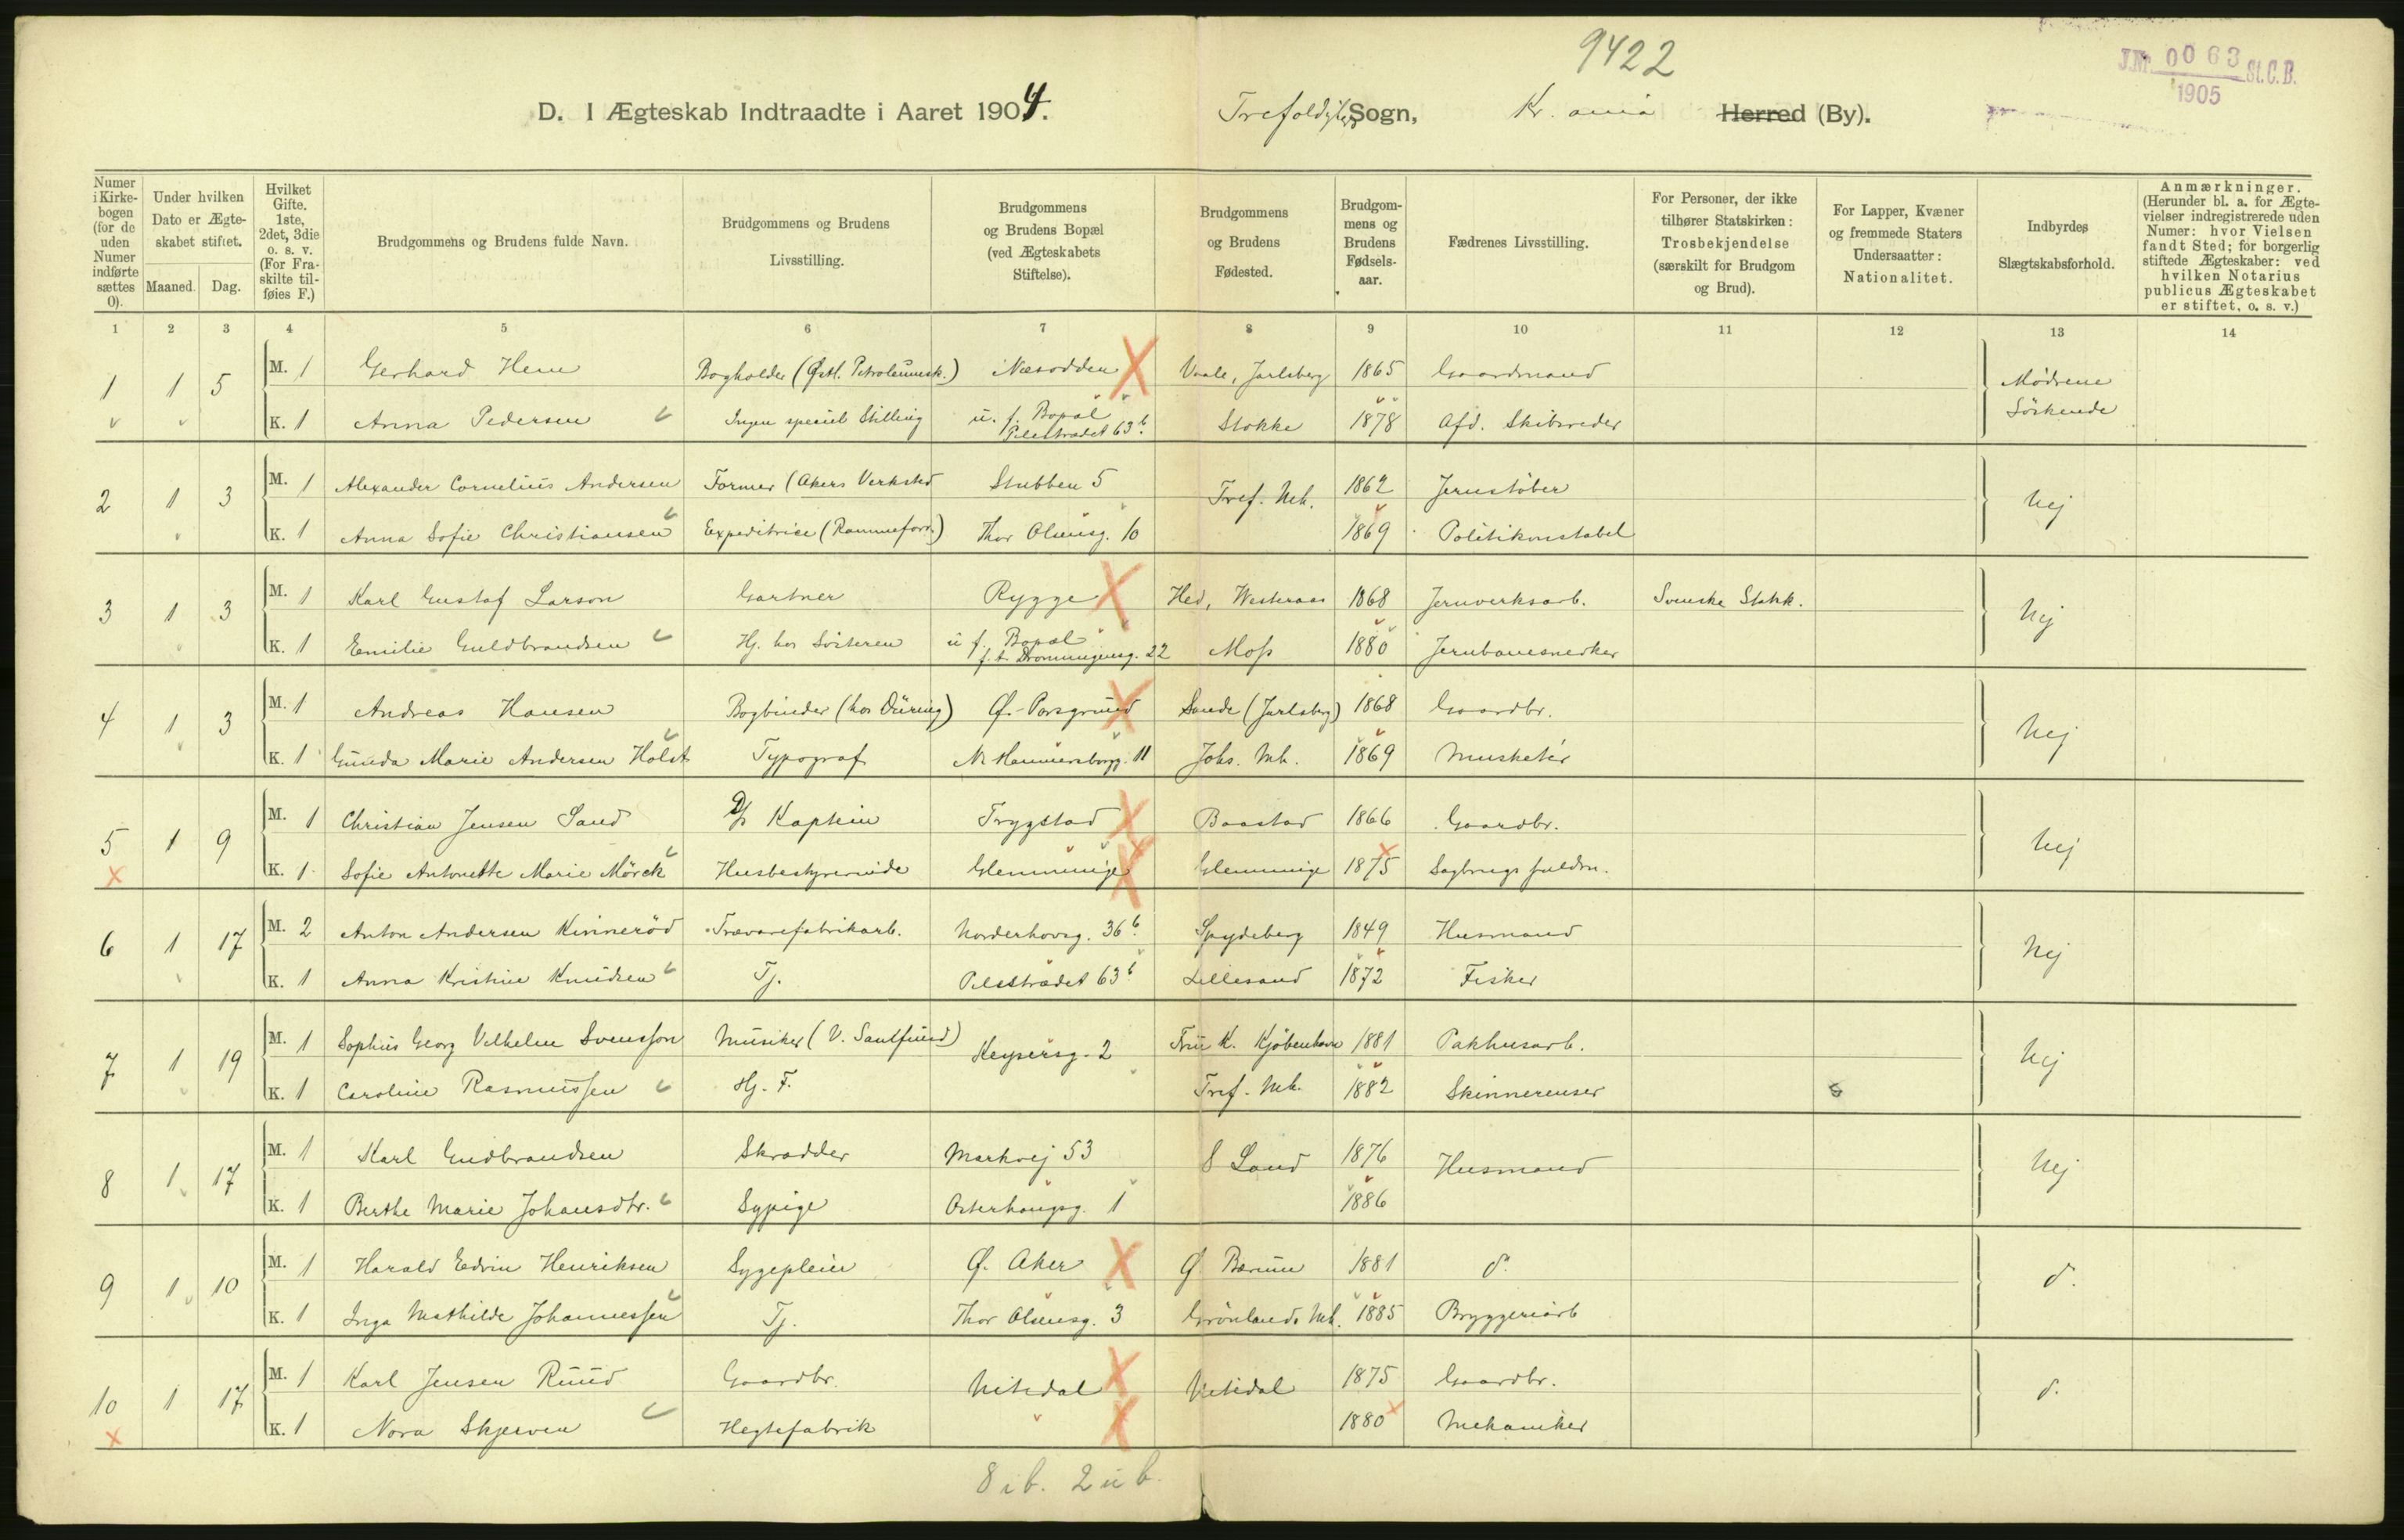 9422
J.Nr. 0063 St.C.B.
1905
D. I Ægteskab Indtraadte i Aaret 1904. Trefoldigheds Sogn, Kr.ania Herred (By).
Numer i Kirkebogen (for de uden Numer indførte sættes 0).
Under hvilken Dato er Ægteskabet stiftet.
Maaned. Dag.
Hvilket Gifte. 1ste, 2det, 3die o. s. v. (For Fraskilte tilføies F.)
Brudgommens og Brudens fulde Navn.
Brudgommens og Brudens Livsstilling.
Brudgommens og Brudens Bopæl (ved Ægteskabets Stiftelse).
Brudgommens og Brudens Fødested.
Brudgommens og Brudens Fødselsaar.
Fædrenes Livsstilling.
For Personer, der ikke tilhører Statskirken: Trosbekjendelse (særskilt for Brudgom og Brud).
For Lapper, Kvæner og fremmede Staters Undersaatter: Nationalitet.
Indbyrdes Slægtskabsforhold.
Anmærkninger. (Herunder bl. a. for Ægtevielser indregistrerede uden Numer: hvor Vielsen fandt Sted; for borgerlig stiftede Ægteskaber: ved hvilken Notarius publicus Ægteskabet er stiftet, o. s. v.)
1 2 3 4 5 6 7 8 9 10 11 12 13 14
1 1 5 M. 1 Gerhard Hem Bogholder (Østl. Petroleumsk.) Næsodden Vaale, Jarlsberg 1865 Gaardmand Mødrene Söskende
K. 1 Anna Pedersen Ingen speciel Stilling u. f. Bopæl Pilestrædet 63 b. Stokke 1878 Afd. Skibsreder
2 1 3 M. 1 Alexander Cornelius Andersen Former (Akers Verksted Stubben 5 Tref. Mh. 1862 Jernstöber Nej
K. 1 Anna Sofie Christiansen Expeditrice (Rammeforr.) Thor Olsensg. 10 1869 Politikonstabel
3 1 3 M. 1 Karl Gustaf Larson Gartner Rygge Hed, Westeraas 1868 Jernverksarb. Svenske Statsk. Nej
K. 1 Emilie Guldbrandsen Hj. hos Söstren u f. Bopæl f. t. Dronningensg. 22 Moss 1880 Jernbanesnedker
4 1 3 M. 1 Andreas Hansen Bogbinder (hos Düring) Ø. Porsgrund Sande (Jarlsberg) 1868 Gaardbr. Nej
K. 1 Gunda Marie Andersen Holst Typograf N. Hammersborgg. 11 Johs. Mh. 1869 Musketér
5 1 9 M. 1 Christian Jensen Sand D/s Kaptein Trygstad Baastad 1866 Gaardbr. Nej
K. 1 Sofie Antonette Marie Mörck Husbestyrerinde Glemminge Glemminge 1875 Sagbrugsfuldm.
6 1 17 M. 2 Anton Andersen Kinneröd Trævarefabrikarb. Norderhovsg. 36 b. Spydeberg 1849 Husmand Nej
K. 1 Anna Kristine Knudsen Tj. Pilestrædet 63 b Lillesand 1872 Fisker
7 1 19 M. 1 Sophus Georg Vilhelm Svensson Musiker Keysersg. 2 Frue K. Kjöbenhavn 1881 Pakhusarb. Nej
K. 1 Caroline Rasmussen Hj. F. Tref. Mh. 1882 Skinnerenser
8 1 17 M. 1 Karl Gudbrandsen Skrædder Markvej 53 S Land 1876 Husmand Nej
K. 1 Berthe Marie Johansdtr. Sypige Osterhougsg. 1 1886
9 1 10 M. 1 Harald Edvin Henriksen Sygepleier Ø. Aker Ø Bærum 1881 do. do.
K. 1 Inga Mathilde Johannessen Tj. Thor Olsensg. 3 Grönlands Mh. 1885 Bryggeriarb
10 1 17 M. 1 Karl Jensen Ruud Gaardbr. Nitedal Nitedal 1875 Gaardbr. do.
K. 1 Nora Skjerven Hegtefabrik 1880 Mekaniker
8 ib. 2 ub.